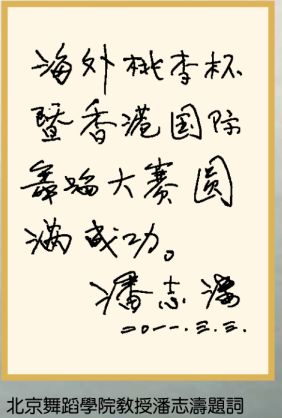 海外桃李杯
暨香港国际
舞蹈大赛圆
满成功。
潘志涛
二〇一一.三.三.
北京舞蹈學院教授潘志濤題詞